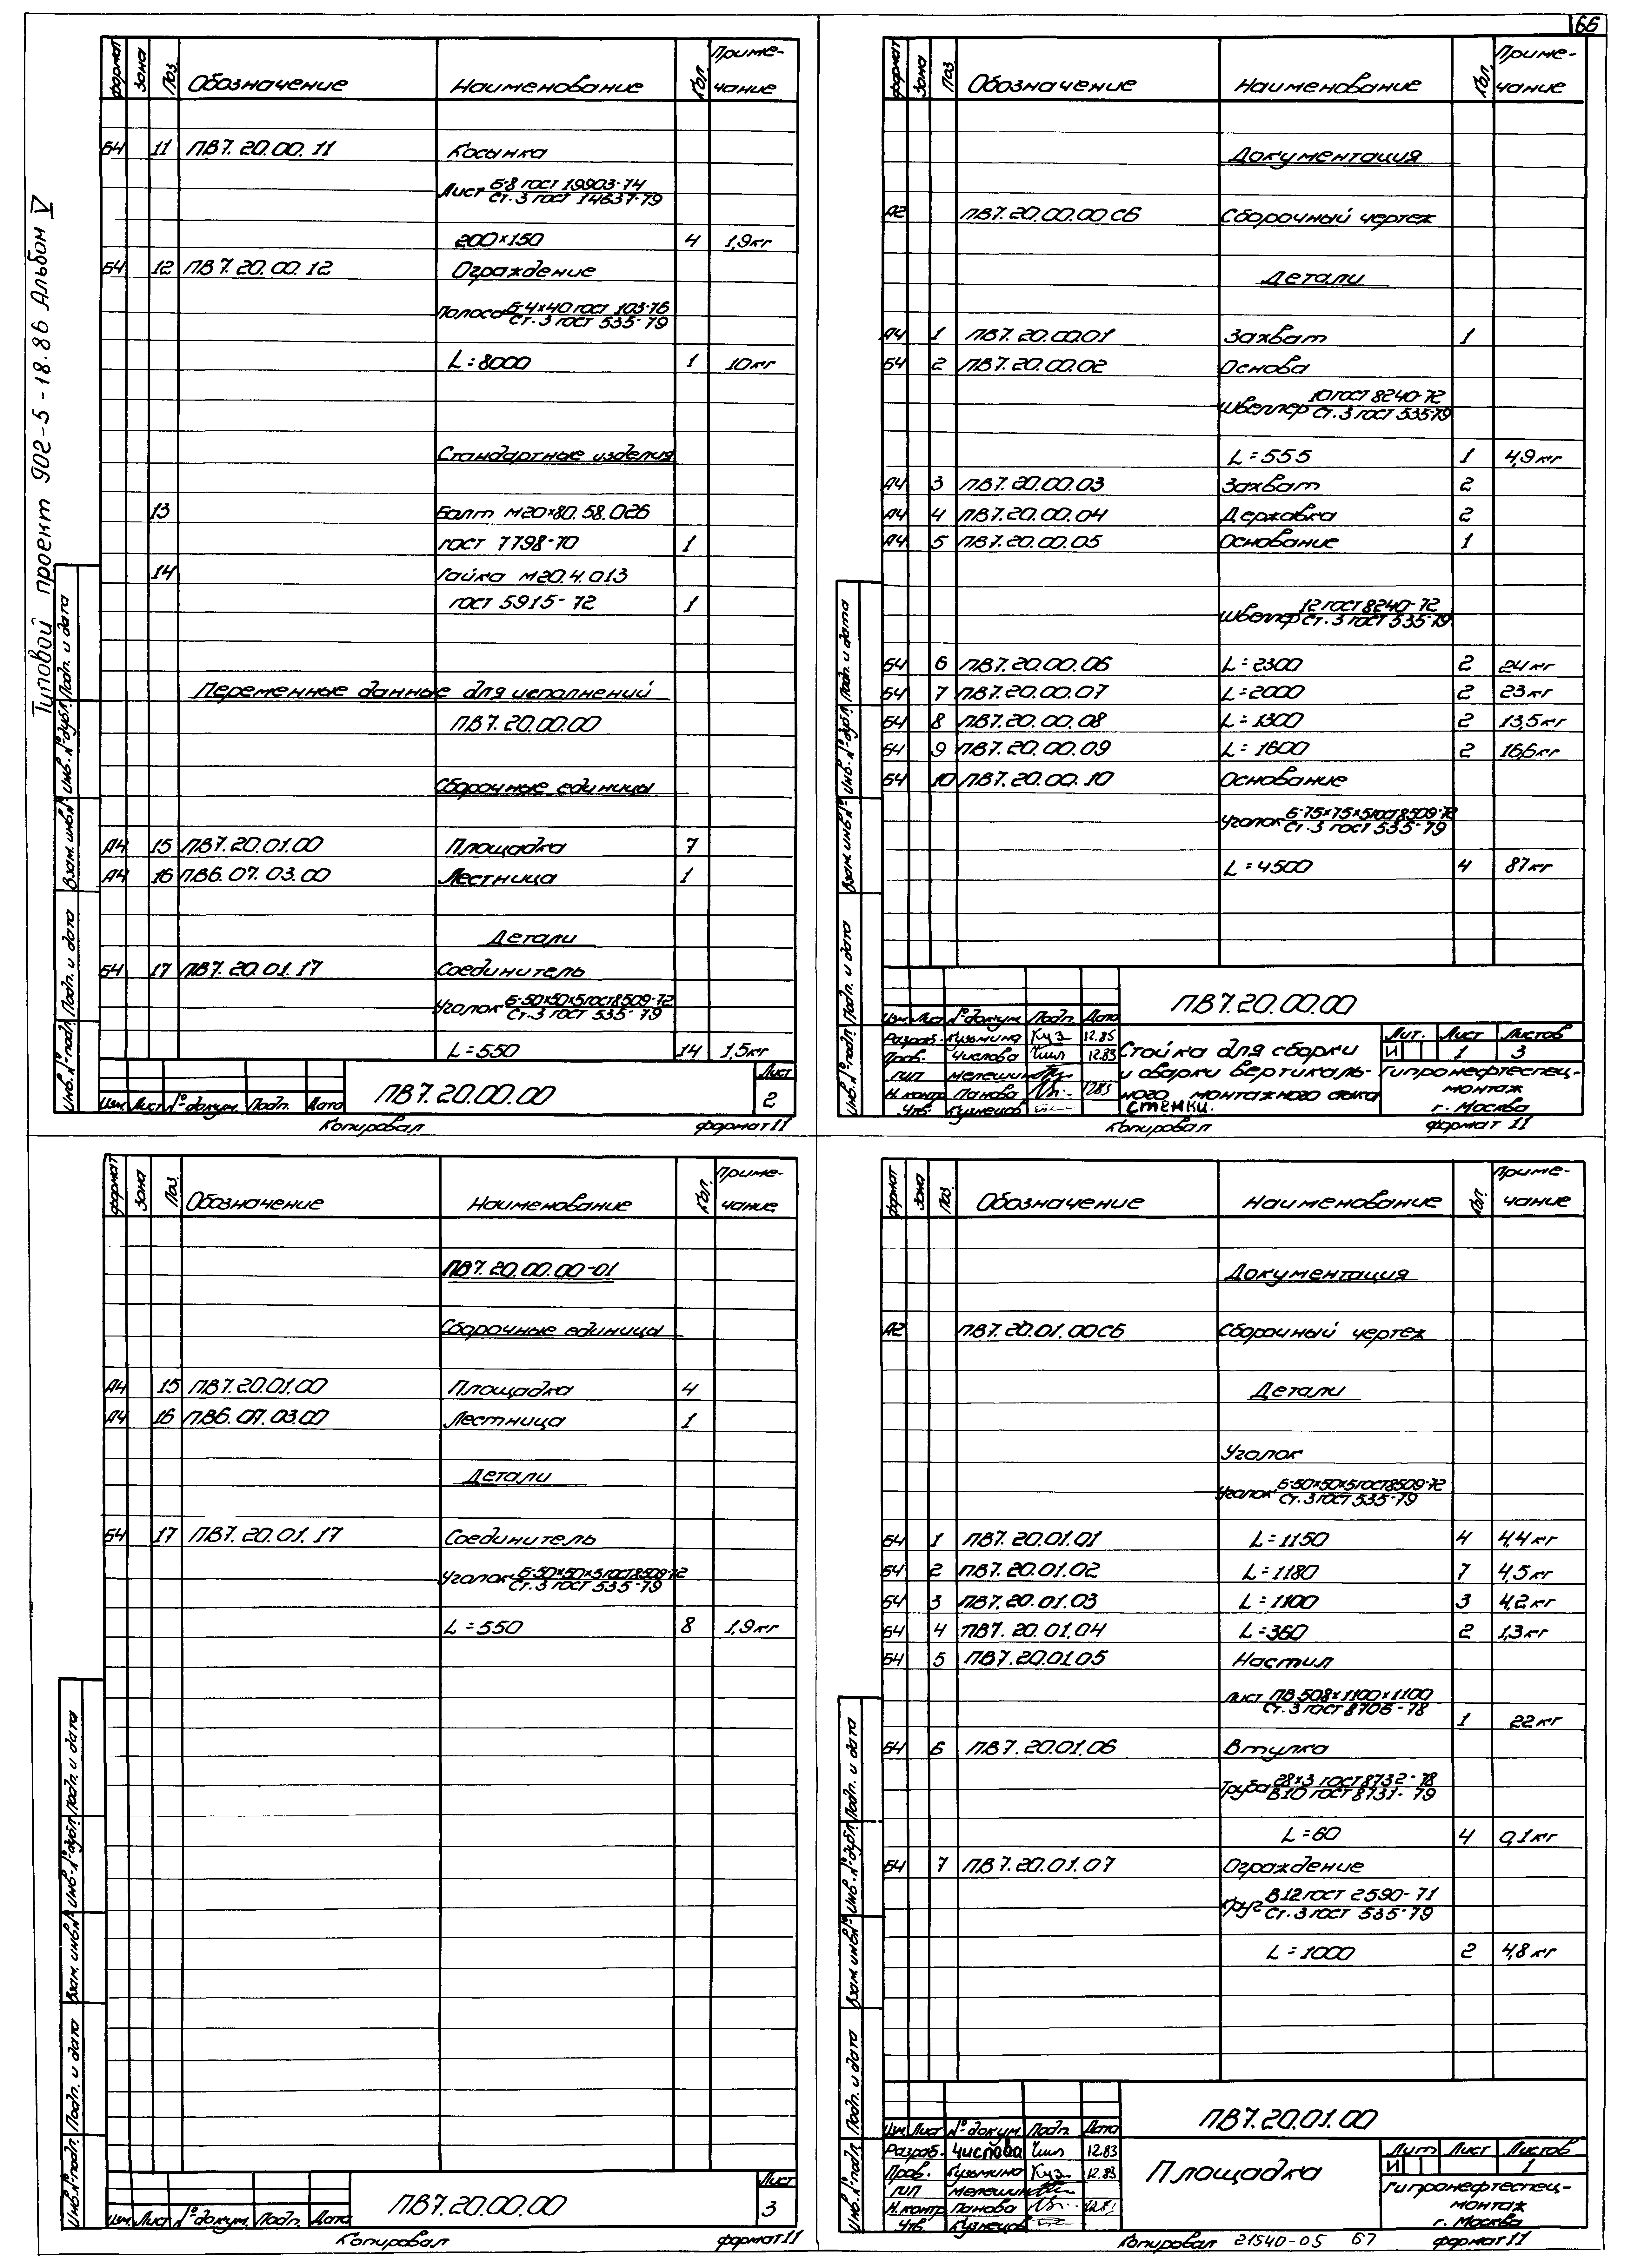 66
Типовой проект 902-5-18.86 Альбом V
формат Зона Поз. Обозначение Наименование Кол. Приме-
чание
Б4 11 ПВ7.20.00.11 Косынка
Лист Б-8 ГОСТ 19903-74
Ст.3 ГОСТ 14637-79
200×150 4 1,9кг
Б4 12 ПВ7.20.00.12 Ограждение
Полоса Б-4×40 ГОСТ 103-76
Ст.3 ГОСТ 535-79
L=8000 1 10кг
Стандартные изделия
13 Болт М20×80.58.026
ГОСТ 7798-70 1
14 Гайка М20.4.013
ГОСТ 5915-72 1
Переменные данные для исполнений
ПВ7.20.00.00
Сборочные единицы
А4 15 ПВ7.20.01.00 Площадка 7
А4 16 ПВ6.07.03.00 Лестница 1
Детали
Б4 17 ПВ7.20.01.17 Соединитель
Уголок Б-50×50×5 ГОСТ 8509-72
Ст.3 ГОСТ 535-79
L=550 14 1,5кг
Изм. Лист № докум. Подп. Дата
ПВ7.20.00.00
Лист
2
Инв.№ подл. Подп. и дата Взам. инв.№ Инв.№ дубл. Подп. и дата
Копировал формат 11
формат Зона Поз. Обозначение Наименование Кол. Приме-
чание
Документация
А2 ПВ7.20.00.00 СБ Сборочный чертеж
Детали
А4 1 ПВ7.20.00.01 Захват 1
Б4 2 ПВ7.20.00.02 Основа
Швеллер 10 ГОСТ 8240-72
Ст.3 ГОСТ 535-79
L=555 1 4,9кг
А4 3 ПВ7.20.00.03 Захват 2
А4 4 ПВ7.20.00.04 Державка 2
А4 5 ПВ7.20.00.05 Основание 1
Швеллер 12 ГОСТ 8240-72
Ст.3 ГОСТ 535-79
Б4 6 ПВ7.20.00.06 L=2300 2 24кг
Б4 7 ПВ7.20.00.07 L=2000 2 23кг
Б4 8 ПВ7.20.00.08 L=1300 2 13,5кг
Б4 9 ПВ7.20.00.09 L=1600 2 16,6кг
Б4 10 ПВ7.20.00.10 Основание
Уголок Б-75×75×5 ГОСТ 8509-72
Ст.3 ГОСТ 535-79
L=4500 4 87кг
ПВ7.20.00.00
Изм. Лист № докум. Подп. Дата
Разраб. Кузьмина Куз 12.85
Пров. Числова Числ 12.83
ГИП
Н.контр Панова 12.83
Утв. Кузнецов
Стойка для сборки
и сварки вертикаль-
ного монтажного стыка
стенки.
Лит. Лист Листов
И 1 3
Гипронефтеспец-
монтаж
г. Москва
Инв.№ подл. Подп. и дата Взам. инв.№ Инв.№ дубл. Подп. и дата
Копировал формат 11
формат Зона Поз. Обозначение Наименование Кол. Приме-
чание
ПВ7.20.00.00-01
Сборочные единицы
А4 15 ПВ7.20.01.00 Площадка 4
А4 16 ПВ6.07.03.00 Лестница 1
Детали
Б4 17 ПВ7.20.01.17 Соединитель
Уголок Б-50×50×5 ГОСТ 8509-72
Ст.3 ГОСТ 535-79
L=550 8 1,9кг
Изм. Лист № докум. Подп. Дата
ПВ7.20.00.00
Лист
3
Инв.№ подл. Подп. и дата Взам. инв.№ Инв.№ дубл. Подп. и дата
Копировал формат 11
формат Зона Поз. Обозначение Наименование Кол. Приме-
чание
Документация
А2 ПВ7.20.01.00СБ Сборочный чертеж
Детали
Уголок
Уголок Б-50×50×5 ГОСТ 8509-72
Ст.3 ГОСТ 535-79
Б4 1 ПВ7.20.01.01 L=1150 4 4,4кг
Б4 2 ПВ7.20.01.02 L=1180 7 4,5кг
Б4 3 ПВ7.20.01.03 L=1100 3 4,2кг
Б4 4 ПВ7.20.01.04 L=360 2 1,3кг
Б4 5 ПВ7.20.01.05 Настил
Лист ПВ 508×1100×1100
Ст.3 ГОСТ 8706-78
1 22кг
Б4 6 ПВ7.20.01.06 Втулка
Труба 28×3 ГОСТ 8732-78
В10 ГОСТ 8731-79
L=60 4 0,1кг
Б4 7 ПВ7.20.01.07 Ограждение
Круг В12 ГОСТ 2590-71
Ст.3 ГОСТ 535-79
L=1000 2 4,8кг
ПВ7.20.01.00
Изм. Лист № докум. Подп. Дата
Разраб. Числова Числ 12.83
Пров. Кузьмина Куз 12.83
ГИП
Н.контр Панова 12.83
Утв. Кузнецов
Площадка
Лит Лист Листов
И 1
Гипронефтеспец-
монтаж
г. Москва
Инв.№ подл. Подп. и дата Взам. инв.№ Инв.№ дубл. Подп. и дата
Копировал 21540-05 67 формат 11